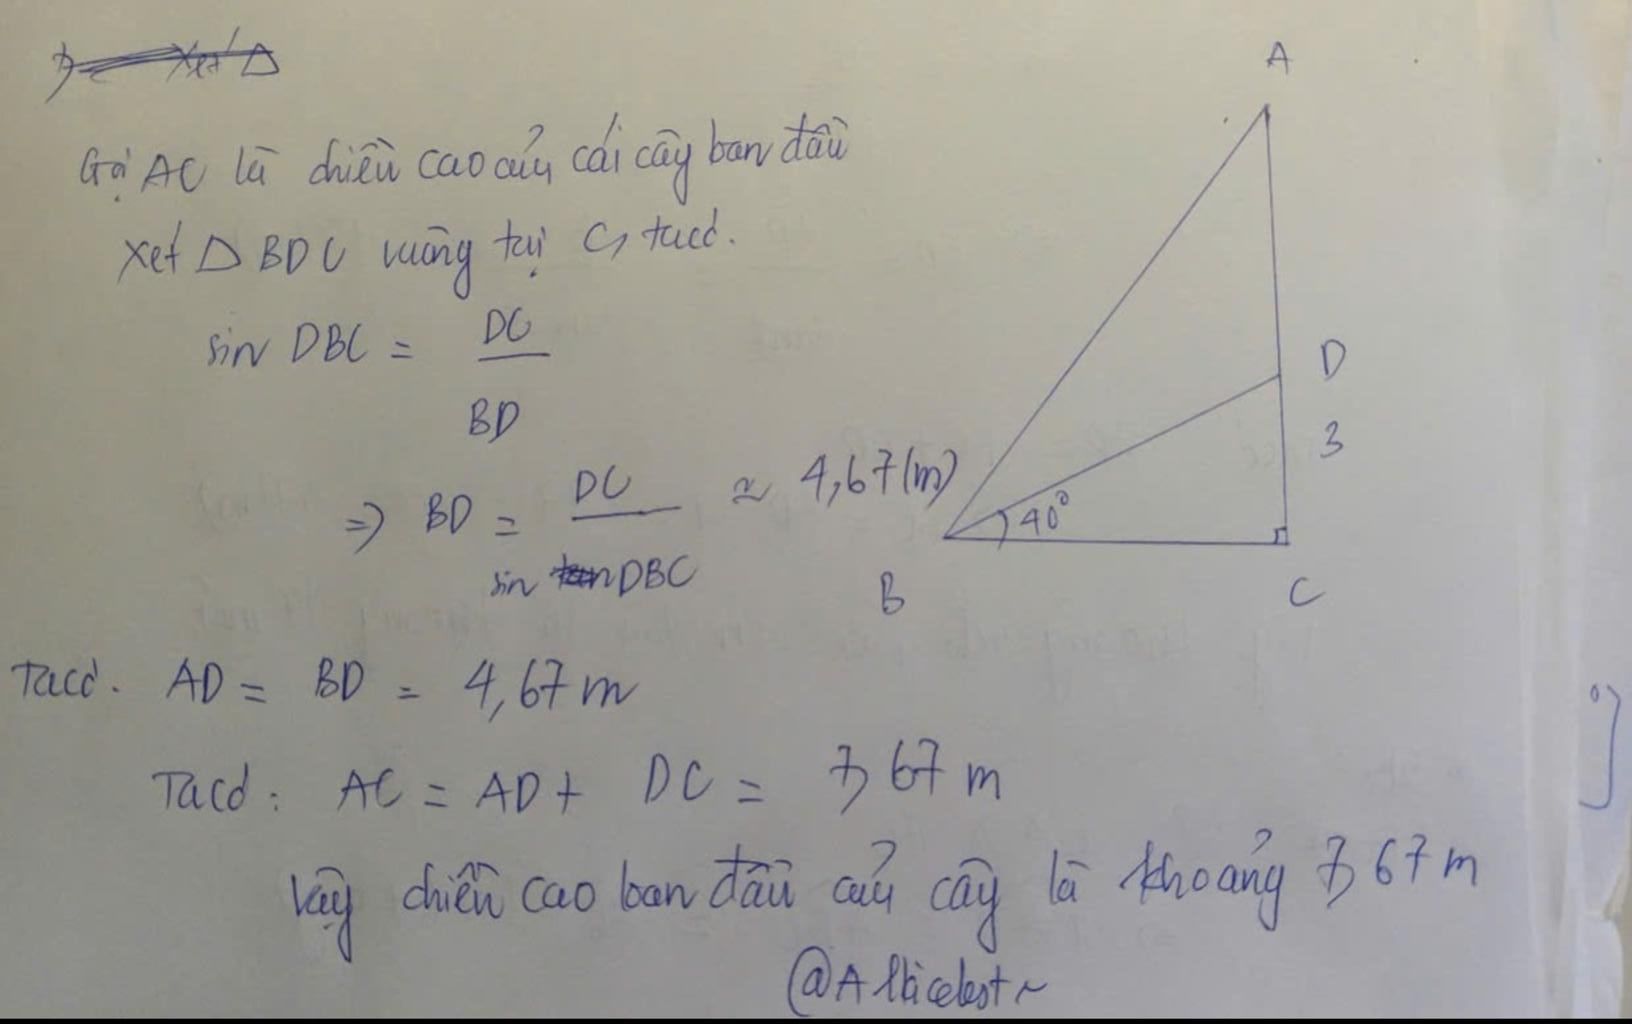 Xét Δ
Gọi AC là chiều cao của cái cây ban đầu
Xét Δ BDC vuông tại C, ta có.
sin DBC = DC / BD
=> BD = DC / sin DBC ≈ 4,67 (m)
Ta có. AD = BD = 4,67 m
Ta có: AC = AD + DC = 7,67 m
Vậy chiều cao ban đầu của cây là khoảng 7,67 m
A
D
3
40°
B
C